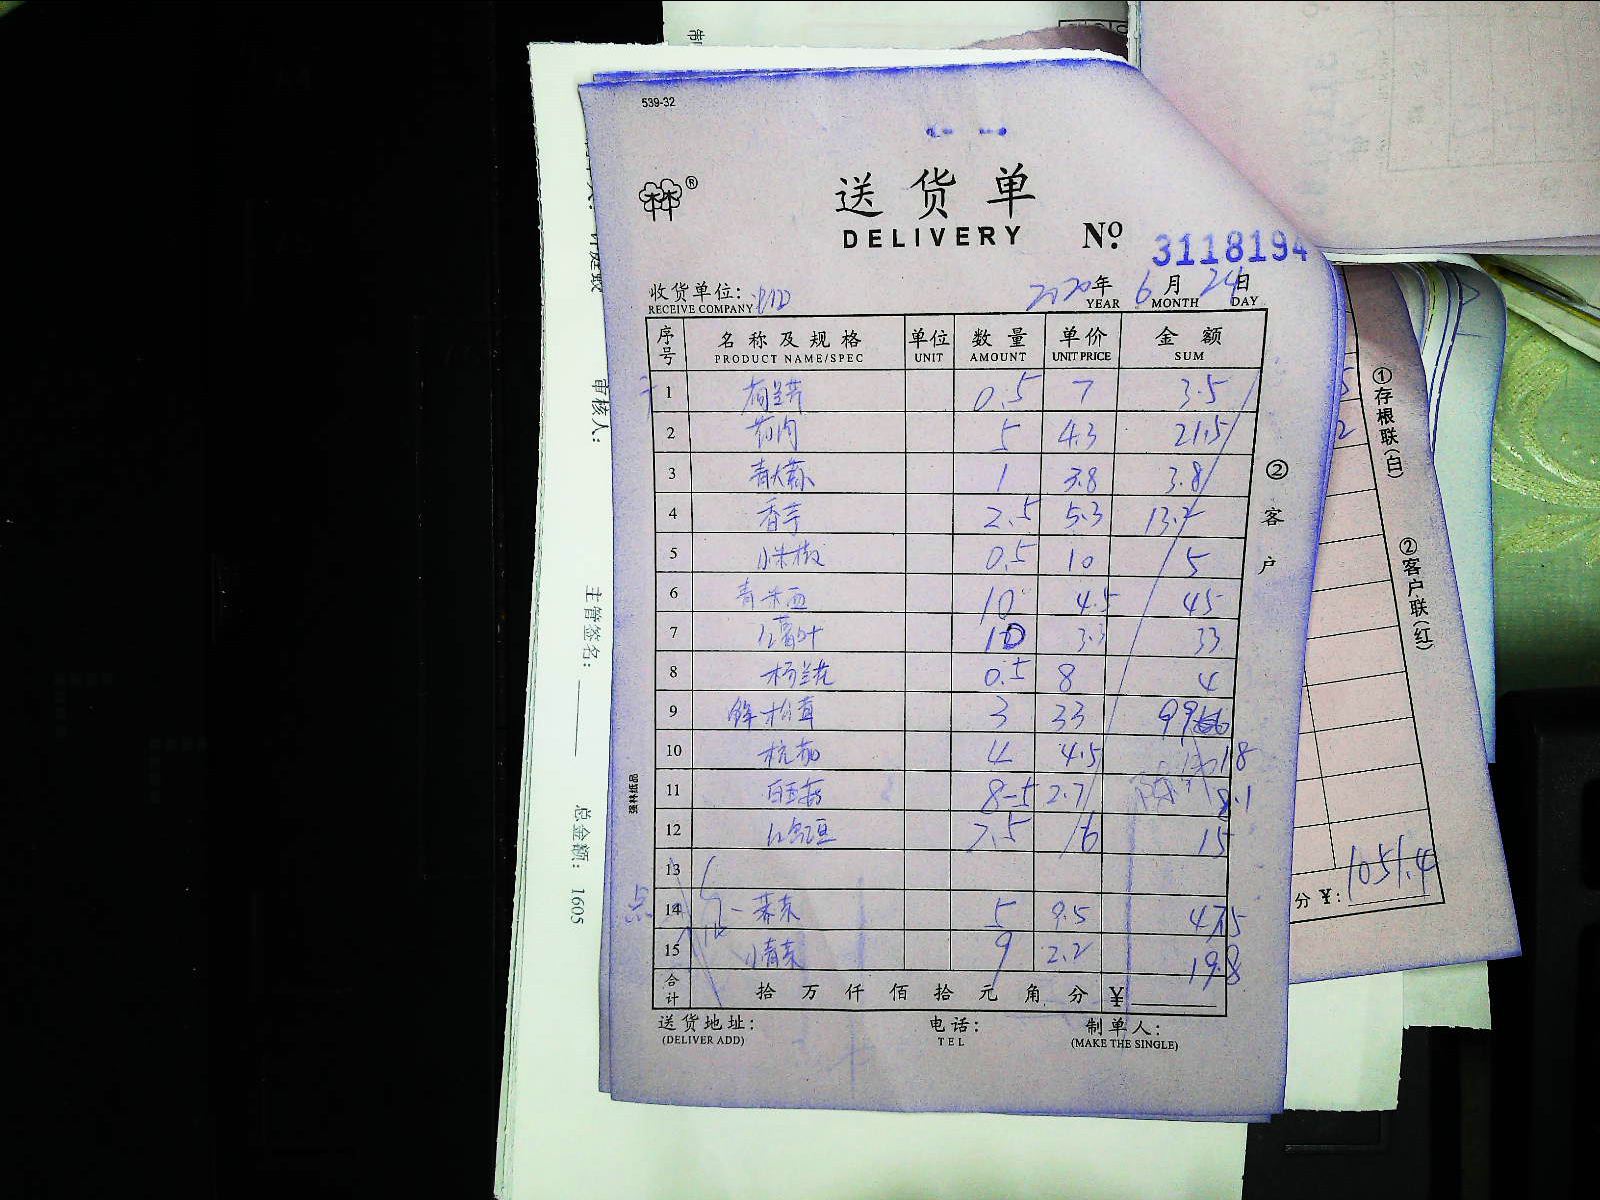 539-32
®
送货单
DELIVERY
Nº 3118194
收货单位:
RECEIVE COMPANY
2020年 6月 24日
YEAR MONTH DAY
序号 名称及规格 单位 数量 单价 金额
PRODUCT NAME/SPEC UNIT AMOUNT UNIT PRICE SUM
1 荷兰芹 0.5 7 3.5
2 5 4.3 21.5
3 青大蒜 1 3.8 3.8
4 香芋 2.5 5.3 13.2
5 小米椒 0.5 10 5
6 10 4.5 45
7 红薯叶 10 3.3 33
8 0.5 8 4
9 松茸 3 33 99
10 杭茄 4 4.5 18
11 2.7 8.1
12 2.5 6 15
13
14 5 9.5 47.5
15 小青菜 9 2.2 19.8
合计 拾 万 仟 佰 拾 元 角 分 ¥
送货地址:
(DELIVER ADD)
电话:
TEL
制单人:
(MAKE THE SINGLE)
②客户
强林纸品
审核人:
主管签名:
总金额: 1605
①存根联(白)
②客户联(红)
分 ¥: 1051.4